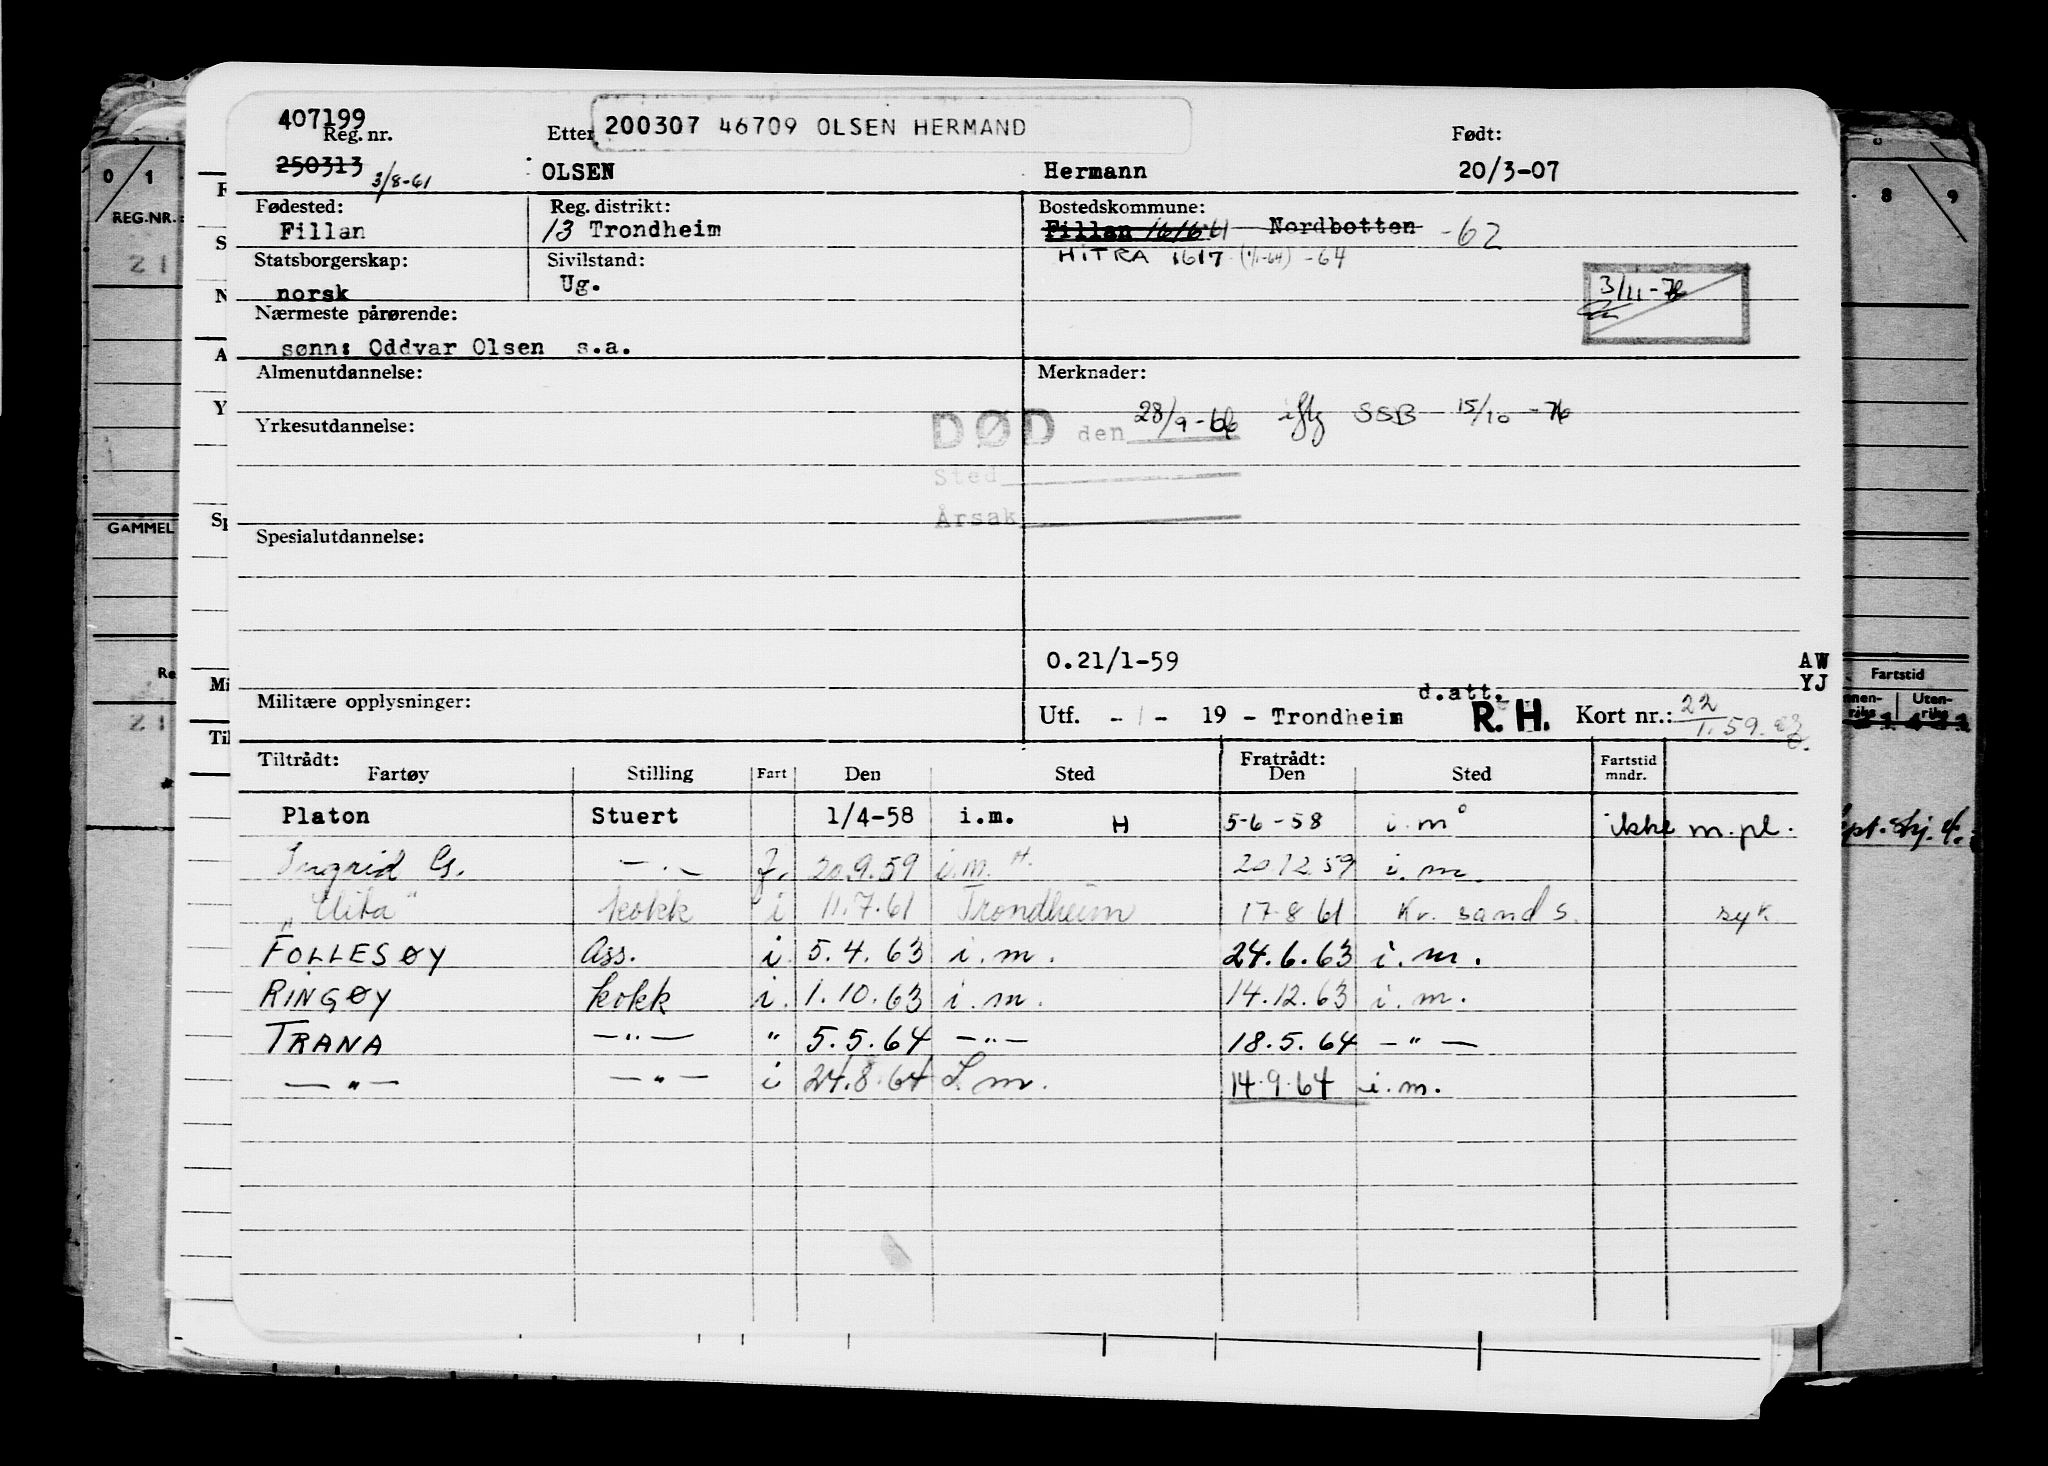 407199
Reg. nr.
Etter
200307 46709 OLSEN HERMAND
Født:
250313 3/8-61
OLSEN
Hermann
20/3-07
Fødested:
Reg. distrikt:
Bostedskommune:
Fillan
13 Trondheim
Fillan Nordbotten -62
Statsborgerskap:
Sivilstand:
HITRA 1617 (1/1-64) -64
norsk
Ug.
3/11-76
Nærmeste pårørende:
sønn: Oddvar Olsen s.a.
Almenutdannelse:
Merknader:
DØD den 28/9-66 iflg SSB 15/10-76
Yrkesutdannelse:
Sted
Årsak
Spesialutdannelse:
0.21/1-59
AW
YJ
Militære opplysninger:
d.att.
Utf. - / - 19 - Trondheim R.H. Kort nr.: 22
1.59.
Tiltrådt:
Fratrådt:
Fartøy Stilling Fart Den Sted Den Sted Fartstid mndr.
Platon Stuert 1/4-58 i.m. H 5-6-58 i.m. ikke m.pl.
Ingrid G. —.— f. 20.9.59 i.m. H. 20 12 59 i.m.
kokk i 11.7.61 Trondheim 17-8 61 Kr. sand S. syk
FOLLESØY Ass. i. 5.4.63 i.m. 24.6.63 i.m.
RINGØY kokk i. 1.10.63 i.m. 14.12.63 i.m.
TRANA —"— " 5.5.64 —"— 18.5.64 —"—
—"— —"— i 24.8.64 i.m. 14.9.64 i.m.
0 / 1
REG.NR.:
21
GAMMEL
Re
21
F
S
N
A
Y
Sp
Mi
Til
8 9
Fartstid
nnen-
riks
Uten-
riks